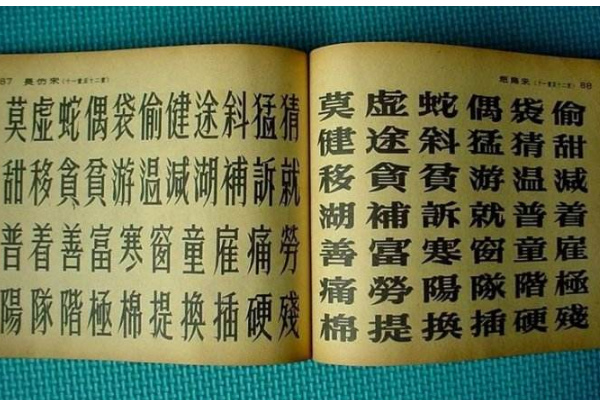 67 長仿宋(十一畫至十二畫)
莫虛蛇偶袋偷健途斜猛猜
甜移貪貧游溫減湖補訴就
普着善富寒窗童雇痛勞
陽隊階極棉提換插硬殘
扁宋(十一畫至十二畫) 68
莫虛蛇偶袋偷
健途斜猛猜甜
移貪貧游溫減
湖補訴就普着
善富寒窗童雇
痛勞陽隊階極
棉提換插硬殘